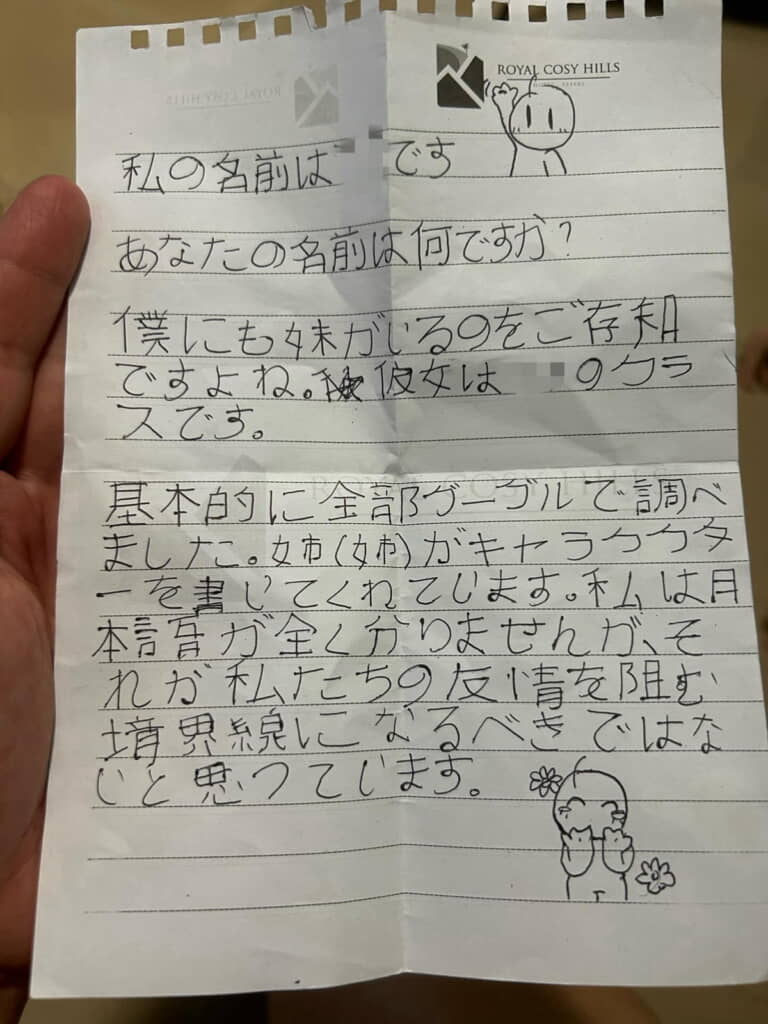 ROYAL COSY HILLS
私の名前は です
あなたの名前は何ですか?
僕にも妹がいるのをご存知
ですよね。彼女は のクラ
スです。
基本的に全部グーグルで調べ
ました。姉(姉)がキャラククタ
ーを書いてくれています。私は月
本語が全く分りませんが、そ
れが私たちの友情を阻む
境界線になるべきではな
いと思つています。